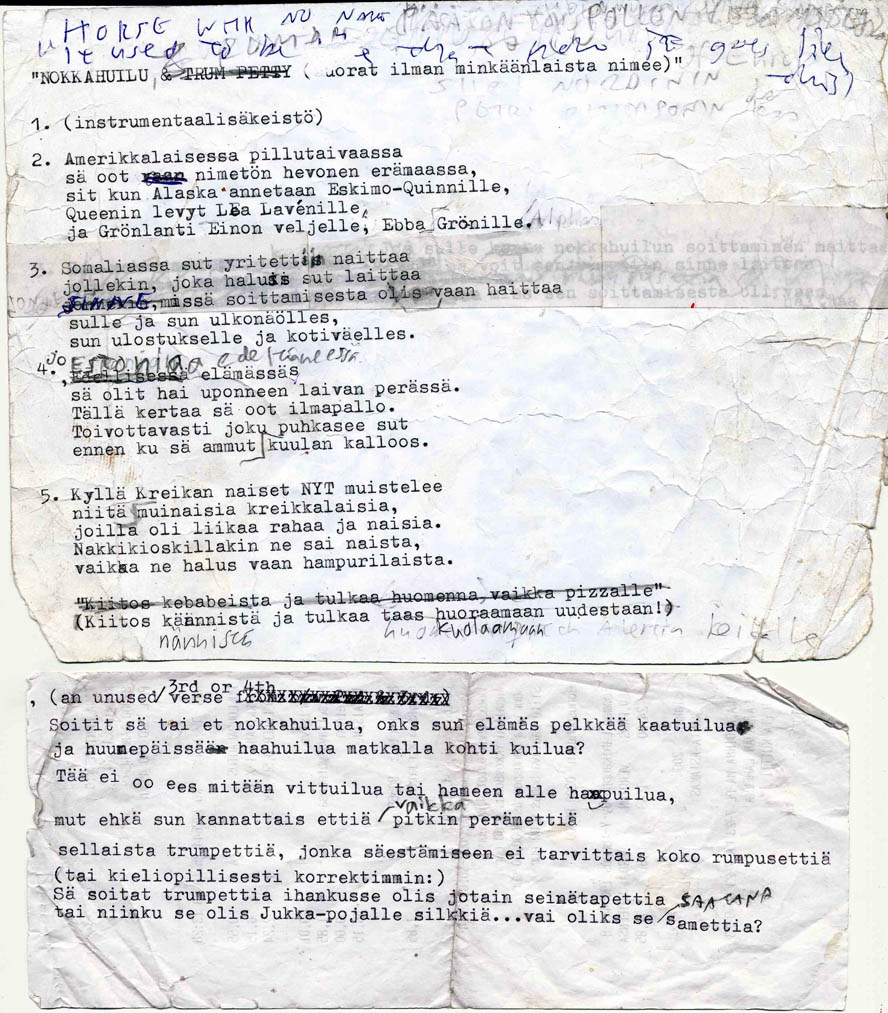 HORSE WITH NO NAME
It used to be
goes like this)
"NOKKAHUILU & TRUM PETTY ( uorat ilman minkäänlaista nimee)"
1. (instrumentaalisäkeistö)
2. Amerikkalaisessa pillutaivaassa
sä oot vaan nimetön hevonen erämaassa,
sit kun Alaska annetaan Eskimo-Quinnille,
Queenin levyt LEa Lavénille,
ja Grönlanti Einon veljelle, Ebba Grönille.
nokkahuilun soittaminen
3. Somaliassa sut yritettiin naittaa
jollekin, joka halusis sut laittaa
missä soittamisesta olis vaan haittaa
sulle ja sun ulkonäölles,
sun ulostukselle ja kotiväelles.
4. jo Estoniaa edeltäneessä
Edellisessä elämässäs
sä olit hai uponneen laivan perässä.
Tällä kertaa sä oot ilmapallo.
Toivottavasti joku puhkasee sut
ennen ku sä ammut kuulan kalloos.
5. Kyllä Kreikan naiset NYT muistelee
niitä muinaisia kreikkalaisia,
joilla oli liikaa rahaa ja naisia.
Nakkikioskillakin ne sai naista,
vaikka ne halus vaan hampurilaista.
"Kiitos kebabeista ja tulkaa huomenna vaikka pizzalle"
(Kiitos käännistä ja tulkaa taas huoraamaan uudestaan!)
kuolaamaan
, (an unused 3rd or 4th verse
Soitit sä tai et nokkahuilua, onks sun elämäs pelkkää kaatuilua
ja huumepäissään haahuilua matkalla kohti kuilua?
Tää ei oo ees mitään vittuilua tai hameen alle haapuilua,
mut ehkä sun kannattais ettiä vaikka pitkin perämettiä
sellaista trumpettiä, jonka säestämiseen ei tarvittais koko rumpusettiä
(tai kieliopillisesti korrektimmin:)
Sä soitat trumpettia ihankusse olis jotain seinätapettia SAATANA
tai niinku se olis Jukka-pojalle silkkiä...vai oliks se samettia?